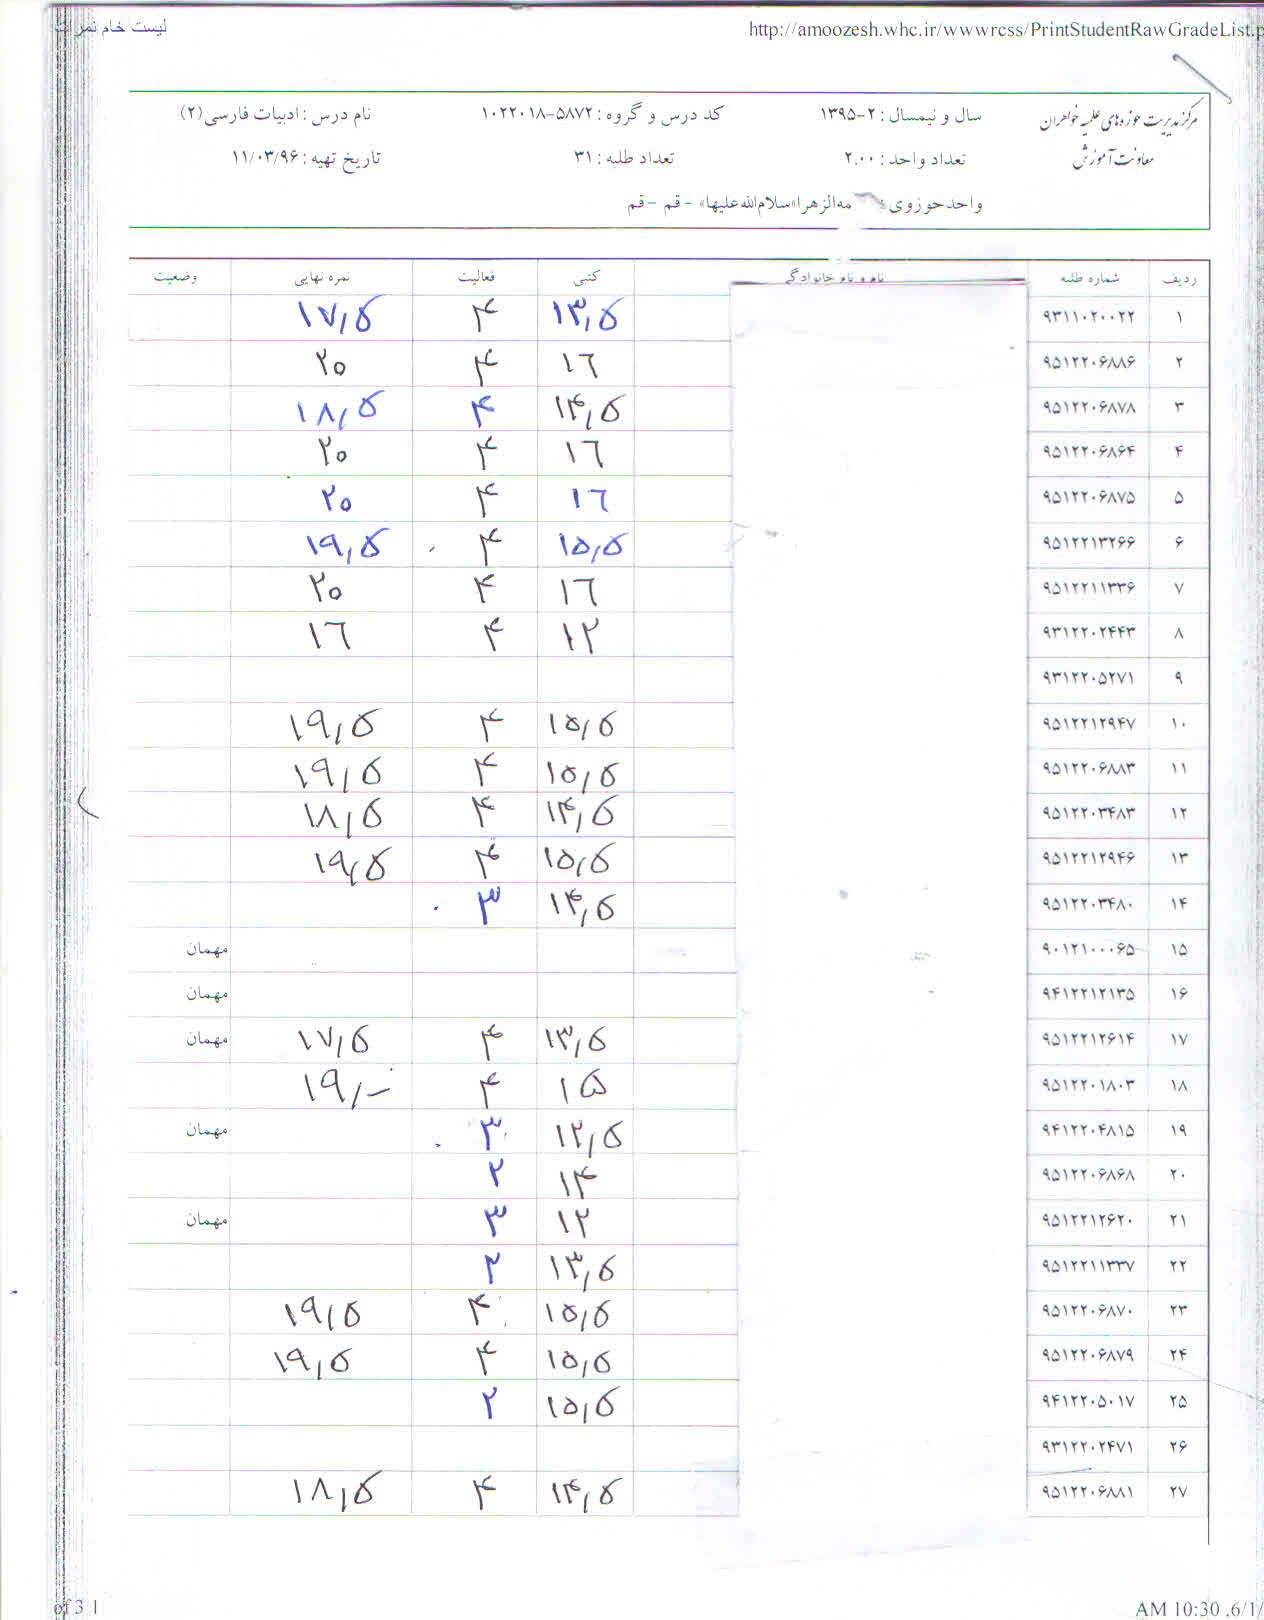 لیست خام نمرات http://amoozesh.whc.ir/wwwrcss/PrintStudentRawGradeList.p
مرکز مدیریت حوزه‌های علمیه خواهران سال و نیمسال : ۲-۱۳۹۵ کد درس و گروه : ۵۸۷۲-۱۰۲۲۰۱۸ نام درس : ادبیات فارسی(۲)
معاونت آموزش تعداد واحد : ۲.۰۰ تعداد طلبه : ۳۱ تاریخ تهیه : ۱۱/۰۳/۹۶
واحد حوزوی مه‌الزهرا«سلام‌الله‌علیها» - قم - قم
ردیف شماره طلبه نام و نام خانوادگی کتبی فعالیت نمره نهایی وضعیت
۱ ۹۳۱۱۰۲۰۰۲۲ ۱۳,۵ ۴ ۱۷,۵
۲ ۹۵۱۲۲۰۶۸۸۶ ۱۶ ۴ ۲۰
۳ ۹۵۱۲۲۰۶۸۷۸ ۱۴,۵ ۴ ۱۸,۵
۴ ۹۵۱۲۲۰۶۸۶۴ ۱۶ ۴ ۲۰
۵ ۹۵۱۲۲۰۶۸۷۵ ۱۶ ۴ ۲۰
۶ ۹۵۱۲۲۱۳۲۶۶ ۱۵,۵ ۴ ۱۹,۵
۷ ۹۵۱۲۲۱۱۳۳۶ ۱۶ ۴ ۲۰
۸ ۹۳۱۲۲۰۲۴۴۳ ۱۲ ۴ ۱۶
۹ ۹۳۱۲۲۰۵۲۷۱
۱۰ ۹۵۱۲۲۱۲۹۴۷ ۱۵,۵ ۴ ۱۹,۵
۱۱ ۹۵۱۲۲۰۶۸۸۳ ۱۵,۵ ۴ ۱۹,۵
۱۲ ۹۵۱۲۲۰۳۴۸۳ ۱۴,۵ ۴ ۱۸,۵
۱۳ ۹۵۱۲۲۱۲۹۴۶ ۱۵,۵ ۴ ۱۹,۵
۱۴ ۹۵۱۲۲۰۳۴۸۰ ۱۴,۵ ۳
۱۵ ۹۰۱۲۱۰۰۰۶۵ مهمان
۱۶ ۹۴۱۲۲۱۲۱۳۵ مهمان
۱۷ ۹۵۱۲۲۱۲۶۱۴ ۱۳,۵ ۴ ۱۷,۵ مهمان
۱۸ ۹۵۱۲۲۰۱۸۰۳ ۱۵ ۴ ۱۹,-
۱۹ ۹۴۱۲۲۰۴۸۱۵ ۱۲,۵ ۳ مهمان
۲۰ ۹۵۱۲۲۰۶۸۶۸ ۱۴ ۲
۲۱ ۹۵۱۲۲۱۲۶۲۰ ۱۲ ۳ مهمان
۲۲ ۹۵۱۲۲۱۱۳۳۷ ۱۳,۵ ۲
۲۳ ۹۵۱۲۲۰۶۸۷۰ ۱۵,۵ ۴ ۱۹,۵
۲۴ ۹۵۱۲۲۰۶۸۷۹ ۱۵,۵ ۴ ۱۹,۵
۲۵ ۹۴۱۲۲۰۵۰۱۷ ۱۵,۵ ۲
۲۶ ۹۳۱۲۲۰۲۴۷۱
۲۷ ۹۵۱۲۲۰۶۸۸۱ ۱۴,۵ ۴ ۱۸,۵
of 3 1 AM 10:30 ,6/1/